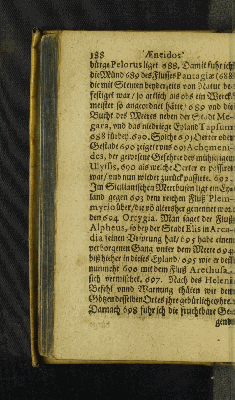 188 Æneidos
bürge Pelorus ligt 688. Damit fuhr ich
die Münd 689 des Flusses Pantagiæ (688
die mit Steinen beyderseits von Natur be-
festiget war / so artlich als obs ein Werck
meister so angeordnet hätte / 689 und die
Bucht des Meeres neben der Stadt Me-
gara, und das niedrige Eyland Tapsum
688 fürüber. 690. Solche 691 Oerter oder
Gestade 690 zeigete uns 691 Achemeni-
des, der gewesene Gefehrte des
Ulyssis, 690 als welche Oerter er passiret
war / und nun wieder zurück passirte. 692.
Im Sicilianischen Meerbusen ligt ein Ey-
land gegen 693 dem reichen Fluß Plem-
myrio über / die vö ältersher genennet wor-
den 694 Ortygia. Man saget der Fluß
Alpheus, so bey der Stadt Elis in Arca-
dia seinen Ursprung hat / 695 habe einen
verborgenen Gang unter dem Meere 694
biß hieher in dieses Eyland / 695 wie er denn
nunmehr 696 mit dem Fluß Arethusa,
sich vermischet. 697. Nach des Heleni
Befehl und Warnung thäten wir den
Götzen desselben Ortes ihre gebührliche
Darnach 698 fuhr ich die fruchtbare Ge-